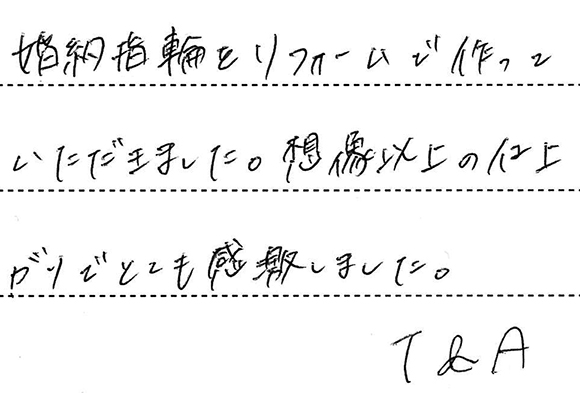 婚約指輪をリフォームで作って
いただきました。想像以上の仕上
がりでとても感激しました。
T & A